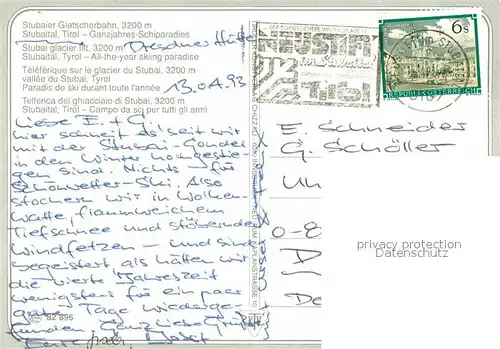 Stubaier Gletscherbahn, 3200 m
Stubaital, Tirol – Ganzjahres-Schiparadies
Dresdner Hütte
Stubai glacier lift, 3200 m
Stubaital, Tyrol – All-the-year skiing paradise
Téléférique sur le glacier du Stubai, 3200 m
vallée du Stubai, Tyrol
Paradis de ski durant toute l'année
13.04.93
Telferica del ghiacciaio di Stubai, 3200 m
Stubaital, Tirol – Campo da sci per tutti gli anni
Liebe E + G!
hier schneit es seit wir
mit der Stubai-Gondel
in den Winter hochgestie-
gen sind. Nichts für
Schönwetter-Ski. Also
stochern wir in Wolken-
watte, flaumweichem
Tiefschnee und stöbernden
Windfetzen – und sind
begeistert als hätten wir
die vierte Jahreszeit
wenigstens für ein paar
gute Tage wiederge-
funden. Ganz liebe Grüße
82 896
NEUSTIFT
im Stubaital
Tirol
6 s
REPUBLIK ÖSTERREICH
E. Schneider
G. Schöller
O-8
D
privacy protection
Datenschutz